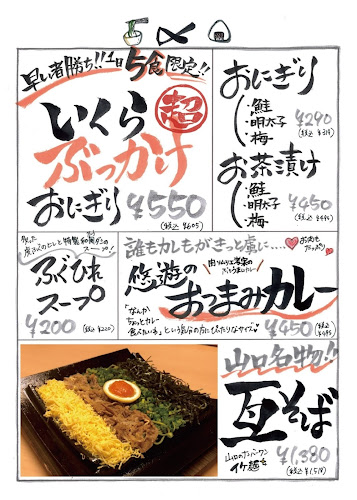 早い者勝ち!!1日5食限定!!
超
いくら
ぶっかけ
おにぎり ¥550
(税込 ¥605)
おにぎり
・鮭
・明太子
・梅
¥290
(税込 ¥319)
お茶漬け
・鮭
・明太子
・梅
¥450
(税込 ¥495)
ふぐひれ
スープ
¥200
(税込 ¥220)
誰もカレもがきっと虜に....
お肉も
たっぷり
悠遊の
おつまみカレー
「なんか
ちょっとカレー
食べたいな」という気分の方にぴったりなサイズ
¥450
(税込 ¥495)
山口名物!!
瓦そば
山口のナンバーワン
イケ麺
¥1,380
(税込 ¥1,518)